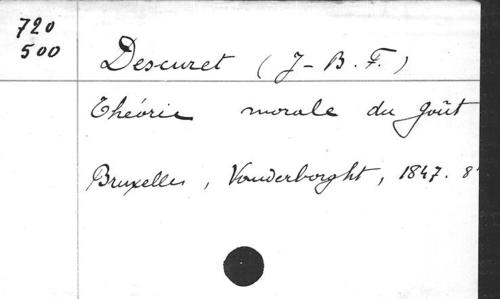 720
500
Descuret (J-B.F.)
Théorie morale du Goût
Bruxelles, Vanderborght, 1847. 8°